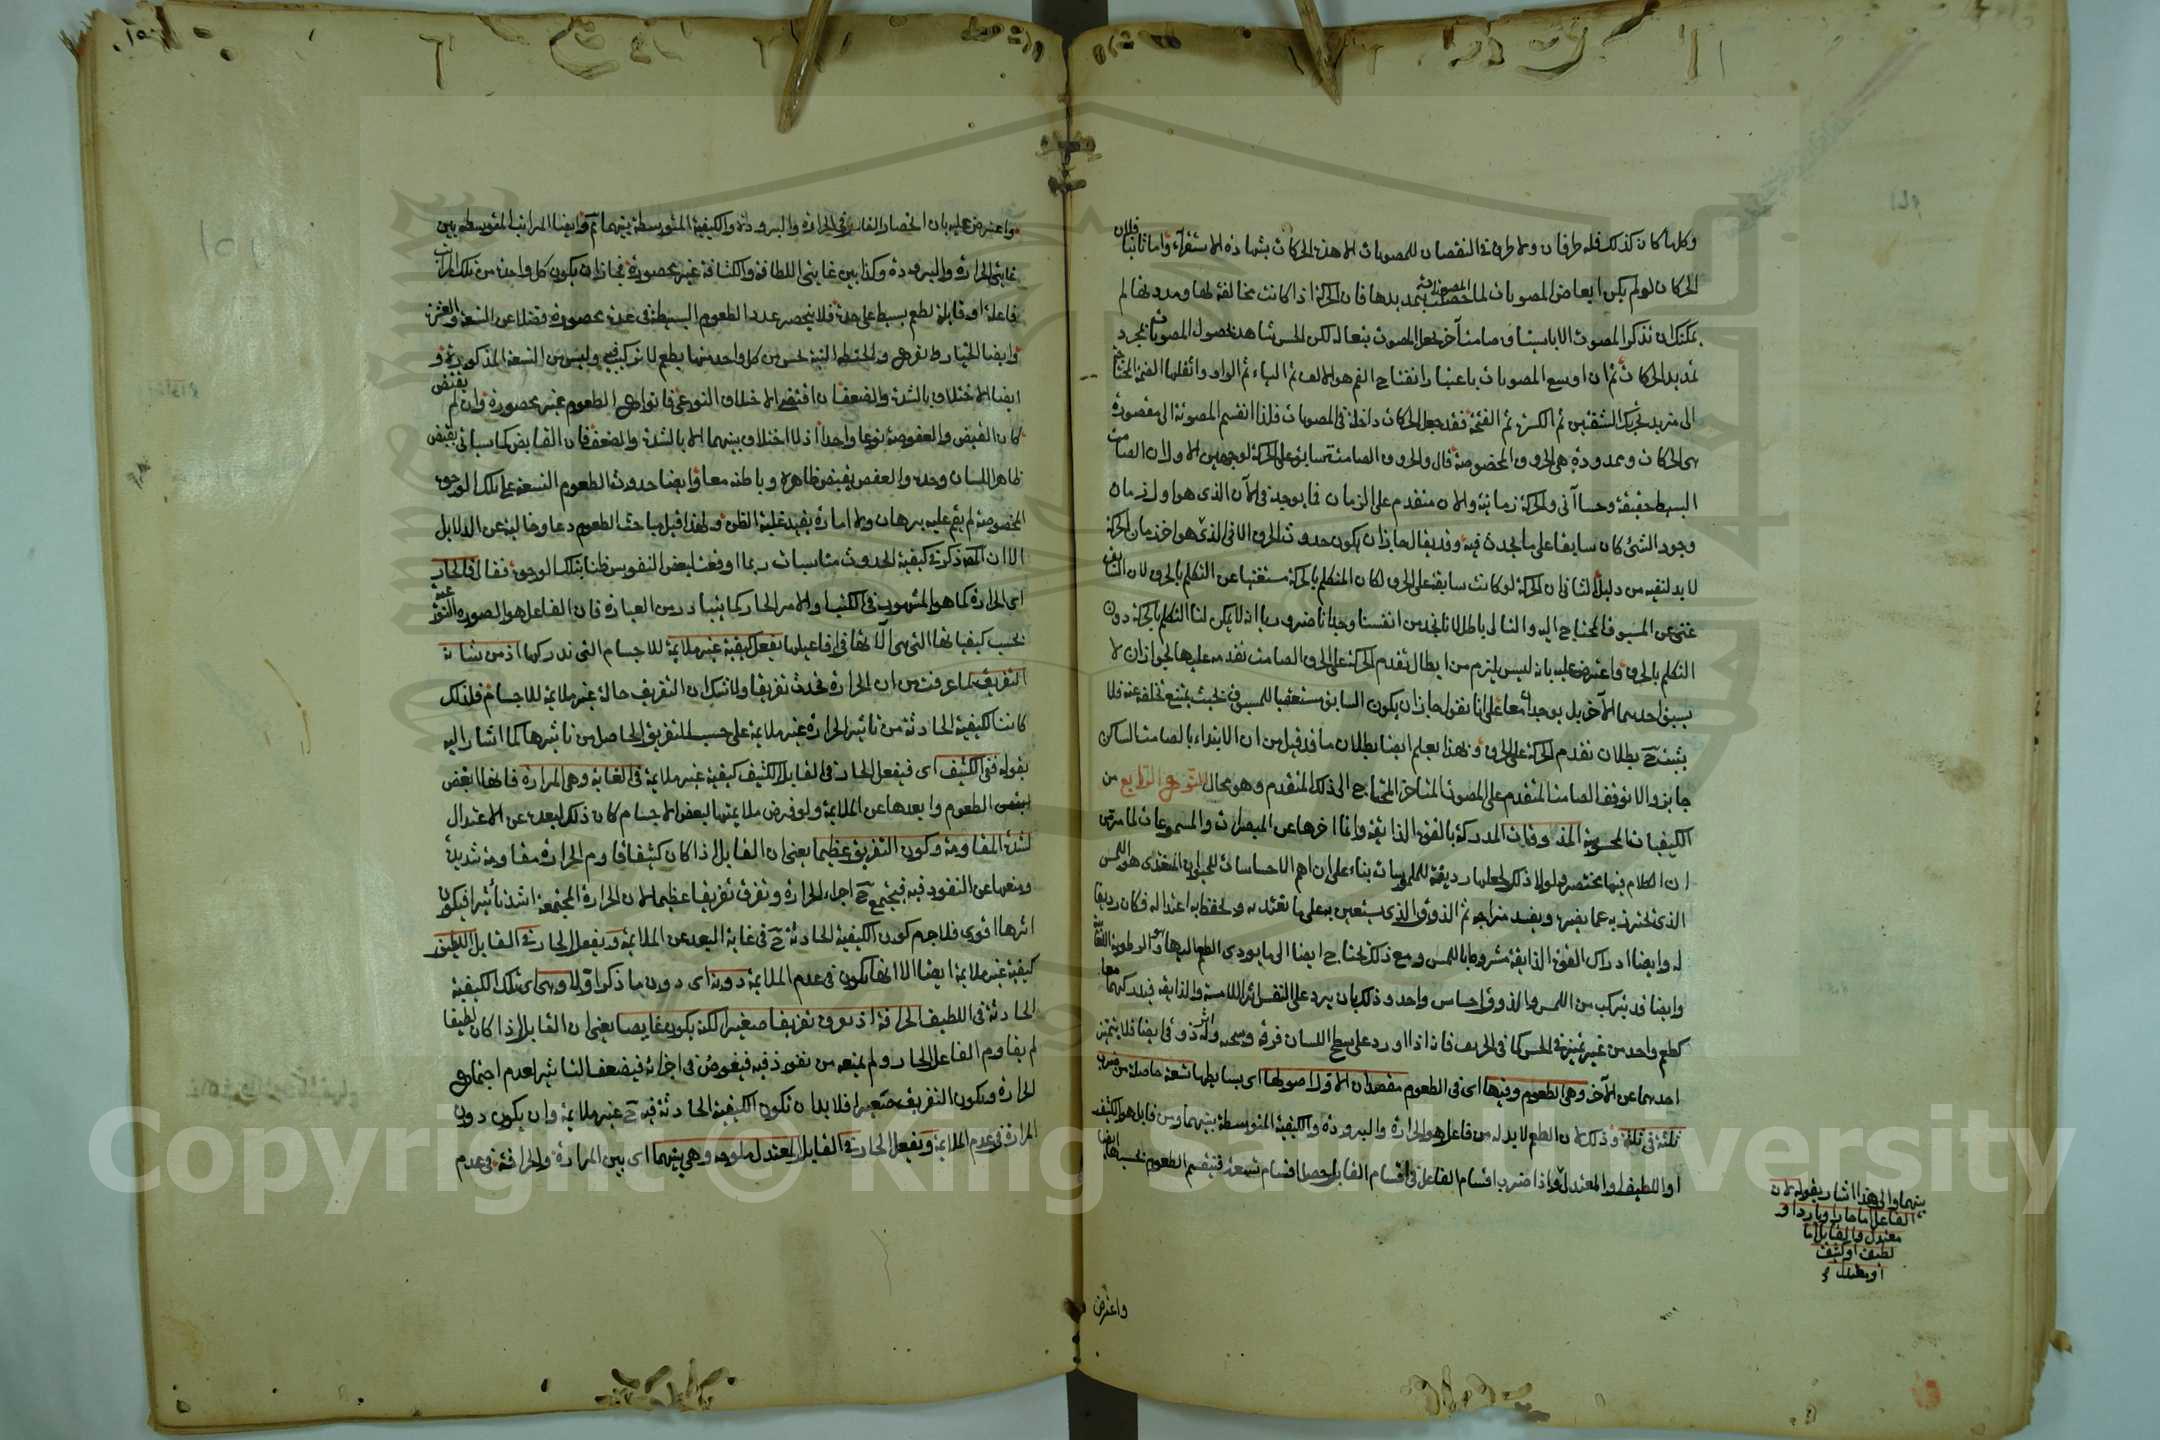 وكل ما كان كذلك فله طرفان ولا طرف في النقصان للمصوتات الا هذه الحركات بشهادة الاستقراء واما ثانيا فلان
الحركات لو لم يكن ابعاض المصوتات لما حصلت المصوتات بتمديدها فان الحركة اذا كانت مخالفة لها ومددتها لم
يمكنك ان تذكر المصوت الا باستيناف صامت آخر يجعل المصوت تبعا له لكن الحس شاهد بحصول المصوتات بمجرد
تمديد الحركات ثم ان اوسع المصوتات باعتبار انفتاح الفم هو الالف ثم الياء ثم الواو واثقلها الضمة المحتاجة
الى مزيد تحريك الشفتين ثم الكسرة ثم الفتحة فقد جعل الحركات داخلة في المصوتات فلذا انقسم المصوتة الى مقصورة
هي الحركات وممدودة هي الحروف المخصوصة قال والحروف الصامتة سابق على الحركة لوجهين الاول ان الصامت
البسيط حقيقة وحسا آني والحركة زمانية والآن متقدم على الزمان فما يوجد في الآن الذي هو اول زمان
وجود الشئ كان سابقا على ما يحدث فيه وقد يقال جاز ان يكون حدوث الحرف الآني الذي هو آخر زمان الحركة
لا بد لنفيه من دليل الثاني ان الحركة لو كانت سابقة على الحرف لكان المتكلم بالحركة مستغنيا عن التكلم بالحرف لان السابق
غني عن المسبوق المحتاج اليه والتالي باطل لانا نجد من انفسنا وجدانا ضروريا انه لا يمكن لنا التكلم بالحركة دون
التكلم بالحرف واعترض عليه بانه ليس يلزم من ابطال تقدم الحركة على الحرف الصامت تقدمه عليها لجواز ان لا
يسبق احدهما الآخر بل يوجدا معا على انا نقول جاز ان يكون السابق مستعقبا للمسبوق بحيث يمتنع تخلفه عنه فلا
يثبت ح بطلان تقدم الحركة على الحرف وبهذا يعلم ايضا بطلان ما قد قيل من ان الابتداء بالصامت الساكن
جايز والا توقف الصامت المتقدم على المصوت المتاخر المحتاج الى ذلك المتقدم وهو محال النوع الرابع من
الكيفيات المحسوسة المذوقات المدركة بالقوة الذايقة وانما اخرها عن المبصرات والمسموعات لما مر من
ان الكلام فيها مختصر ولولا ذلك لجعلها رديفة للملموسات بناء على ان اهم الاحساسات للحيوان المغتذى هو اللمس
الذي يحترز به عما يضره ويفسد مزاجه ثم الذوق الذي يستعين به على ما يغتذى به ويحفظ به اعتداله فكان رديفا
له وايضا ادراك القوة الذايقة مشروط باللمس ومع ذلك يحتاج ايضا الى ما يودي الطعم اليها وهو الرطوبة اللعابية
وايضا قد يتركب من اللمس والذوق احساس واحد وذلك بان يرد على النفس اثر اللامسة والذايقة فيدركهما معا
كطعم واحد من غير تميز في الحس كما في الحريف فانه اذا ورد على سطح اللسان فرقه وسخنه وله اثر ذوقي ايضا فلا يتميز
احدهما عن الآخر وهي الطعوم وفيها اى في الطعوم مقصدان الاول اصولها اى بسايطها تسعة حاصلة من ضرب
ثلثة في ثلثة وذلك لان الطعم لا بد له من فاعل هو الحرارة والبرودة والكيفية المتوسطة بينهما ومن قابل هو الكثيف
او اللطيف او المعتدل واذا ضرب اقسام الفاعل في اقسام القابل حصل اقسام تسعة فينقسم الطعوم بحسبها ايضا
بينهما والى هذا اشار بقوله لان
الفاعل اما حار او بارد او
معتدل والقابل اما
لطيف او كثيف
او معتدل
واعترض
واعترض عليه بان انحصار الفاعل في الحرارة والبرودة والكيفية المتوسطة بينهما مم وايضا المراتب المتوسطة بين
غايتي الحرارة والبرودة وكذا بين غايتي اللطافة والكثافة غير محصورة فجاز ان يكون كل واحدة من تلك المراتب
فاعلة او قابلة لطعم بسيط على حدة فلا ينحصر عدد الطعوم البسيطة في عدد محصورة فضلا عن التسعة
وايضا الخيار والقرع والحنطة النية يحس من كل واحد منها بطعم لا تركيب فيه وليس من التسعة المذكورة و
ايضا الاختلاف بالشدة والضعف ان اقتضى الاختلاف النوعي فانواع الطعوم غير محصورة وان لم يقتض
كان القبض والعفوصة نوعا واحدا اذ لا اختلاف بينهما الا بالشدة والضعف فان القابض كما سياتي يقبض
ظاهر اللسان وحده والعفص يقبض ظاهره وباطنه معا وايضا حدوث الطعوم التسعة على تلك الوجوه
المخصوصة لم يقم عليه برهان ولا امارة يفيد غلبة الظن ولهذا قيل مباحث الطعوم دعاوى خالية عن الدلايل
الا ان المص ذكر في كيفية الحدوث مناسبات ربما اوقعت لبعض النفوس ظنا بتلك الوجوه فقال فالحار
اى الحرارة كما هو المشهور في الكتب او الامر الحار كما يتبادر من العبارة فان الفاعل هو الصورة النوعية
بحسب كيفياتها التي هي آلاتها في افاعيلها يفعل كيفية غير ملايمة للاجسام التي ندركها اذ من شانه
التفريق لما عرفت من ان الحرارة تحدث تفريقا ولا شك ان التفريق حالة غير ملايمة للاجسام فلذلك
كانت الكيفية الحادثة من تاثير الحرارة غير ملايمة على حسب التفريق الحاصل من تاثيرها كما اشار اليه
بقوله ففي الكثيف اى فيفعل الحار في القابل الكثيف كيفية غير ملايمة في الغاية وهي المرارة فانها ابغض
الطعوم وابعدها عن الملايمة ولو فرض ملايمتها لبعض الاجسام كان ذلك لبعده عن الاعتدال
لشدة المقاومة وكون التفريق عظيما يعني ان القابل اذا كان كثيفا قاوم الحرارة مقاومة شديدة
ومنعها عن النفوذ فيه فيجتمع ح اجزاء الحرارة وتفرق تفريقا عظيما لان الحرارة المجتمعة اشد تاثيرا فيكون
اثرها اقوى فلا جرم كون الكيفية الحادثة ح في غاية البعد عن الملايمة ويفعل الحار في القابل اللطيف
كيفية غير ملايمة ايضا الا انها يكون في عدم الملايمة دونه اى دون ما ذكر اولا وهي اى تلك الكيفية
الحادثة في اللطيف الحرافة اذ يفرق تفريقا صغيرا لكنه يكون غايصا يعني ان القابل اذا كان لطيفا
لم يقاوم الفاعل الحار ولم يمنعه من نفوذ فيه فيغوص في اجزائه فيضعف التاثير لعدم اجتماع
الحرارة ويكون التفريق صغيرا فلا بد ان تكون الكيفية الحادثة فيه ح غير ملايمة وان يكون دون
المرارة في عدم الملايمة ويفعل الحار في القابل المعتدل ملوحة وهي بينهما اى بين المرارة والحرافة في عدم
Copyright © King Saud University